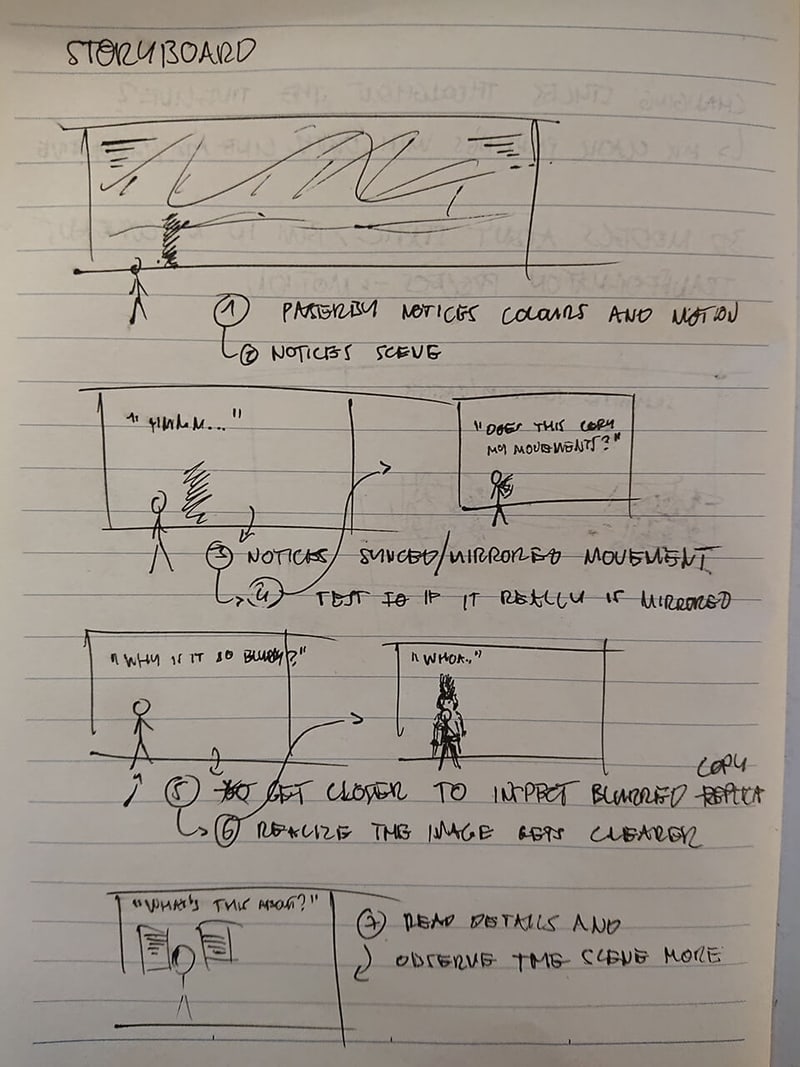 STORYBOARD
① PASERBY NOTICES COLOURS AND MOTION
② NOTICES SCENE
"HMMM..."
"DOES THIS COPY
MY MOVEMENTS?"
③ NOTICES SYNCED/MIRRORED MOVEMENT
④ TEST IF IT REALLY IS MIRRORED
"WHY IS IT SO BLURRY?"
"WHOA.."
COPY
⑤ GET CLOSER TO INSPECT BLURRED REPLICA
⑥ REALIZE THE IMAGE GETS CLEARER
"WHAT'S THIS ABOUT?"
⑦ READ DETAILS AND
OBSERVE THE SCENE MORE